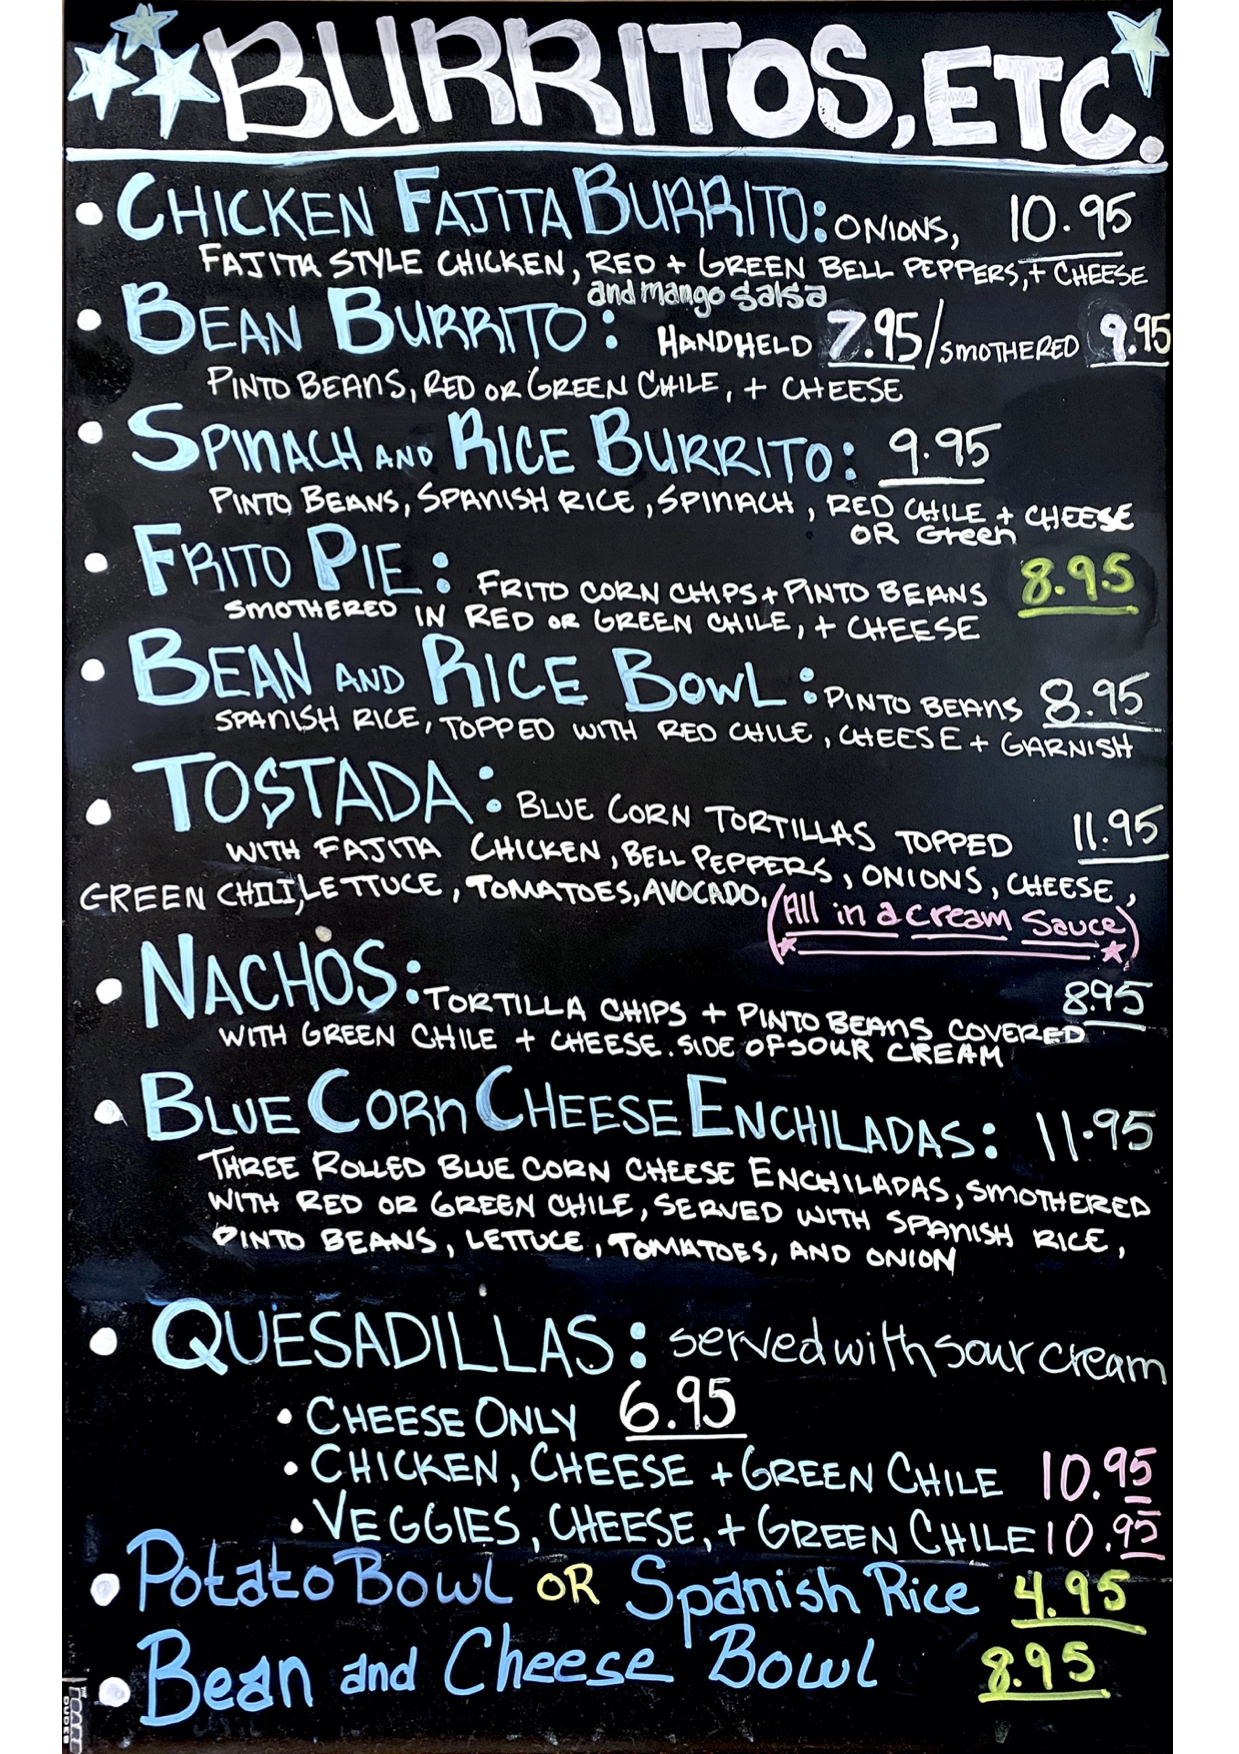 BURRITOS, ETC.
• CHICKEN FAJITA BURRITO: ONIONS, 10.95
FAJITA STYLE CHICKEN, RED + GREEN BELL PEPPERS, + CHEESE
and mango salsa
• BEAN BURRITO: HANDHELD 7.95/SMOTHERED 9.95
PINTO BEANS, RED OR GREEN CHILE, + CHEESE
• SPINACH AND RICE BURRITO: 9.95
PINTO BEANS, SPANISH RICE, SPINACH, RED CHILE + CHEESE
OR Green
• FRITO PIE: FRITO CORN CHIPS + PINTO BEANS 8.95
SMOTHERED IN RED OR GREEN CHILE, + CHEESE
• BEAN AND RICE BOWL: PINTO BEANS 8.95
SPANISH RICE, TOPPED WITH RED CHILE, CHEESE + GARNISH
• TOSTADA: BLUE CORN TORTILLAS TOPPED 11.95
WITH FAJITA CHICKEN, BELL PEPPERS, ONIONS, CHEESE,
GREEN CHILI, LETTUCE, TOMATOES, AVOCADO,
(All in a cream sauce)
• NACHOS: TORTILLA CHIPS + PINTO BEANS COVERED 895
WITH GREEN CHILE + CHEESE. SIDE OF SOUR CREAM
• BLUE CORN CHEESE ENCHILADAS: 11.95
THREE ROLLED BLUE CORN CHEESE ENCHILADAS, SMOTHERED
WITH RED OR GREEN CHILE, SERVED WITH SPANISH RICE,
PINTO BEANS, LETTUCE, TOMATOES, AND ONION
• QUESADILLAS: served with sour cream
• CHEESE ONLY 6.95
• CHICKEN, CHEESE + GREEN CHILE 10.95
• VEGGIES, CHEESE, + GREEN CHILE 10.95
• Potato Bowl OR Spanish Rice 4.95
• Bean and Cheese Bowl 8.95